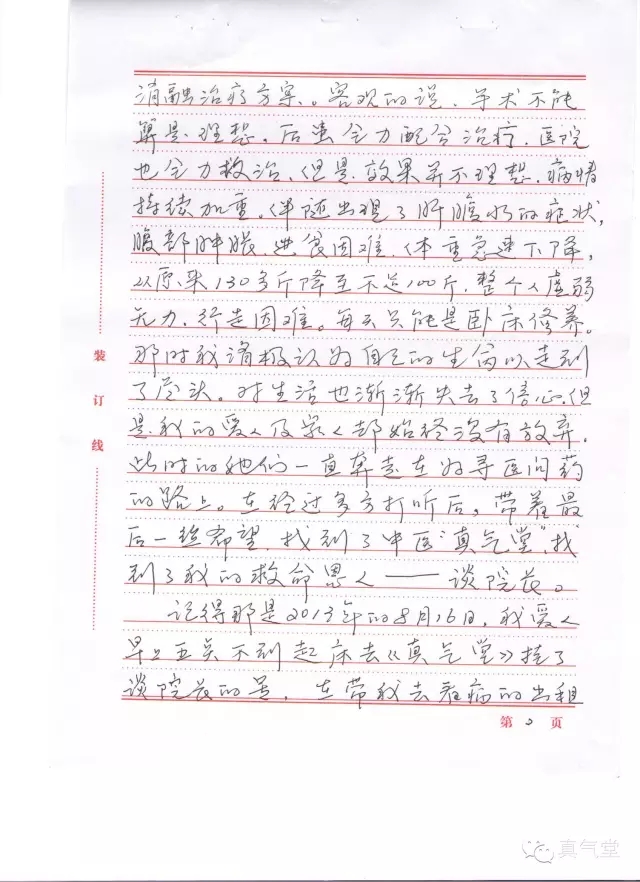 消融治疗方案。客观的说，手术不能
算是理想。后虽全力配合治疗，医院
也全力救治，但是，效果并不理想，病情
持续加重，伴随出现了肝腹水的症状，
腹部肿胀，进食困难，体重急速下降，
从原来130多斤降至不足100斤，整个人虚弱
无力，行走困难。每天只能是卧床修养。
那时我消极认为自己的生命以走到
了尽头。对生活也渐渐失去了信心，但
是我的爱人及家人却始终没有放弃，
此时的他们一直奔走在为寻医问药
的路上。在经过多方打听后，带着最
后一丝希望，找到了中医“真气堂”，找
到了我的救命恩人——谈院长。
记得那是2013年的8月16日，我爱人
早上五点不到起床去《真气堂》挂了
谈院长的号，在带我去看病的出租
装订线
第2页
真气堂